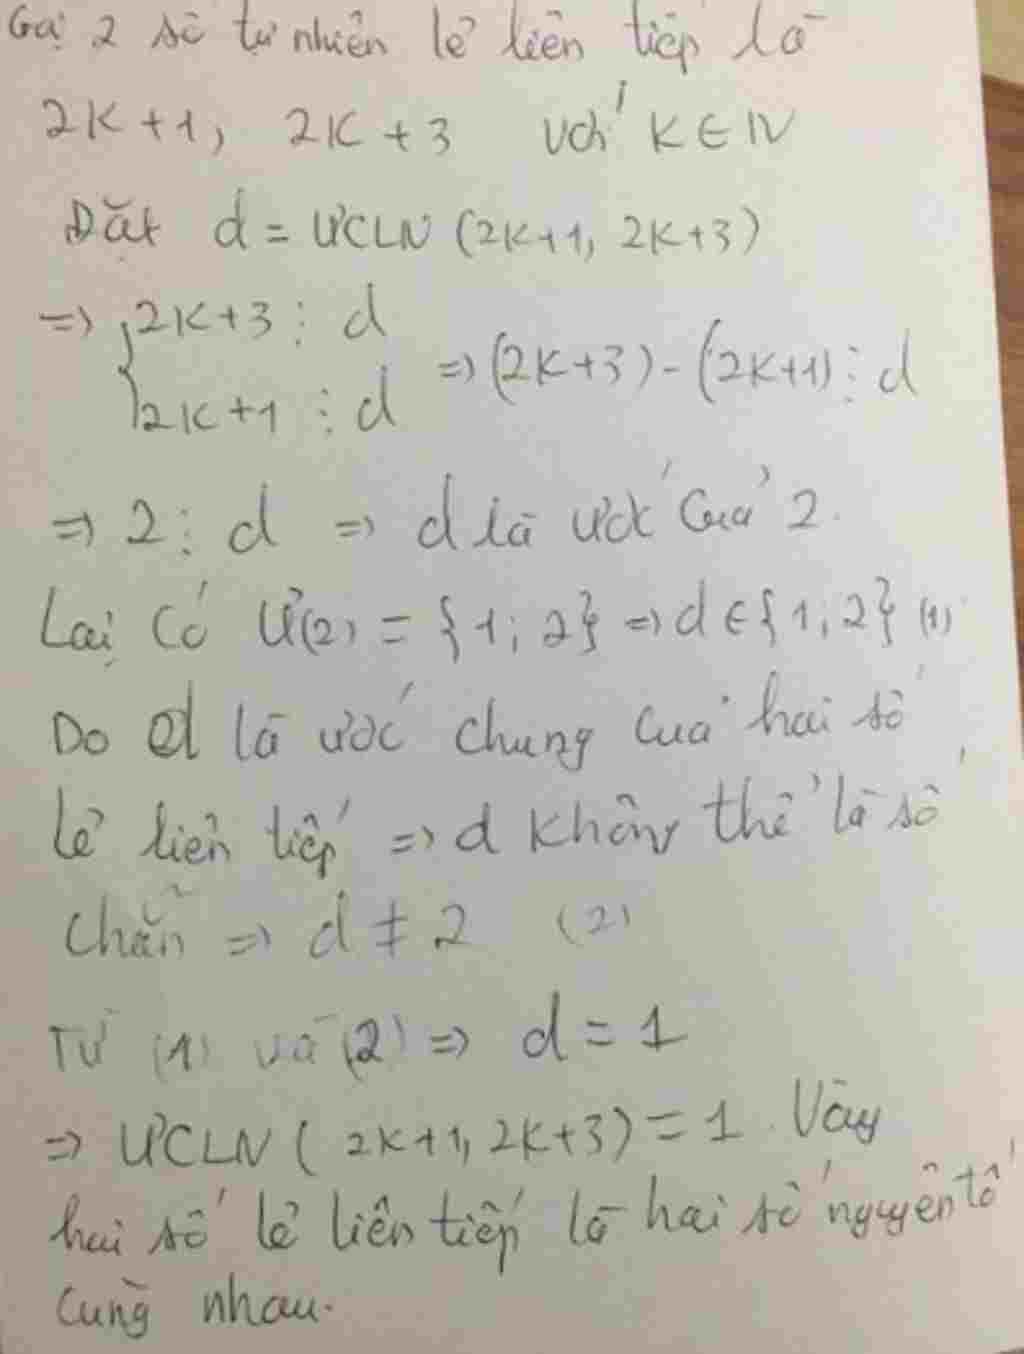 Gọi 2 số tự nhiên lẻ liên tiếp là
2K+1, 2K+3 với K ∈ N
Đặt d = ƯCLN (2K+1, 2K+3)
=> { 2K+3 ⋮ d
2K+1 ⋮ d => (2K+3) - (2K+1) ⋮ d
=> 2 ⋮ d => d là ước của 2.
Lại có Ư(2) = {1; 2} => d ∈ {1; 2} (1)
Do d là ước chung của hai số
lẻ liên tiếp => d không thể là số
chẵn => d ≠ 2 (2)
Từ (1) và (2) => d = 1
=> ƯCLN ( 2K+1, 2K+3) = 1. Vậy
hai số lẻ liên tiếp là hai số nguyên tố
cùng nhau.